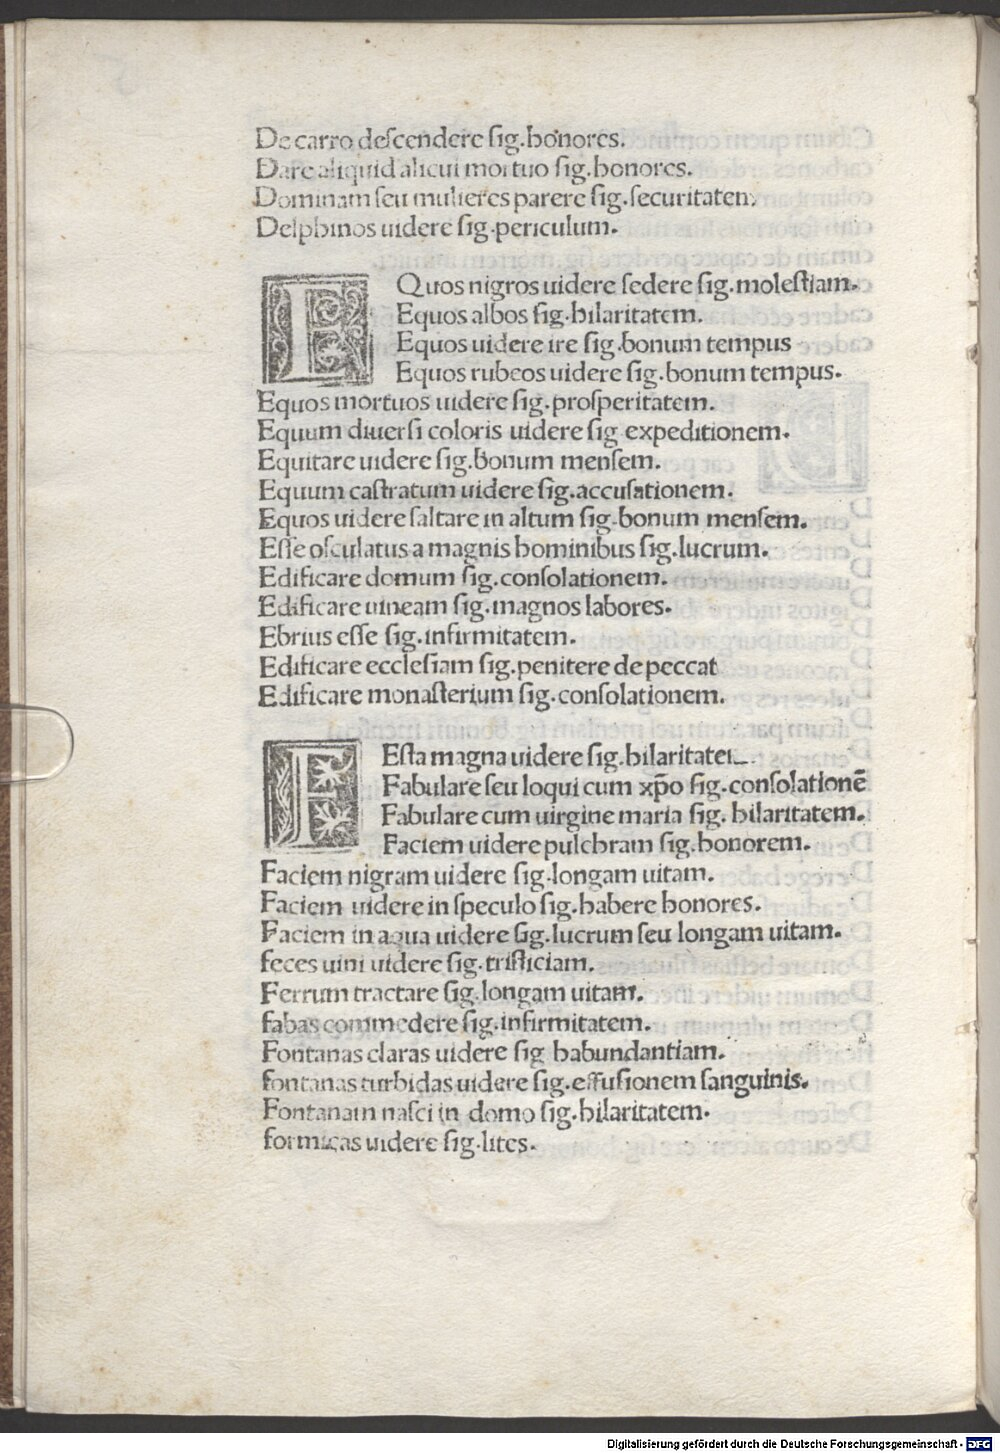 De carro descendere sig. honores.
Dare aliquid alicui mortuo sig. honores.
Dominam seu mulieres parere sig. securitatem.
Delphinos uidere sig. periculum.
EQuos nigros uidere sedere sig. molestiam.
Equos albos sig. hilaritatem.
Equos uidere ire sig. bonum tempus
Equos rubeos uidere sig. bonum tempus.
Equos mortuos uidere sig. prosperitatem.
Equum diuersi coloris uidere sig expeditionem.
Equitare uidere sig. bonum mensem.
Equum castratum uidere sig. accusationem.
Equos uidere saltare in altum sig. bonum mensem.
Esse osculatus a magnis hominibus sig. lucrum.
Edificare domum sig. consolationem.
Edificare uineam sig. magnos labores.
Ebrius esse sig. infirmitatem.
Edificare ecclesiam sig. penitere de peccat
Edificare monasterium sig. consolationem.
FEsta magna uidere sig. hilaritatem.
Fabulare seu loqui cum xp̄o sig. consolationē
Fabulare cum uirgine maria sig. hilaritatem.
Faciem uidere pulchram sig. honorem.
Faciem nigram uidere sig. longam uitam.
Faciem uidere in speculo sig. habere honores.
Faciem in aqua uidere sig. lucrum seu longam uitam.
feces uini uidere sig. tristiciam.
Ferrum tractare sig. longam uitam.
fabas commedere sig. infirmitatem.
Fontanas claras uidere sig habundantiam.
fontanas turbidas uidere sig. effusionem sanguinis.
Fontanam nasci in domo sig. hilaritatem.
formicas uidere sig. lites.
Digitalisierung gefördert durch die Deutsche Forschungsgemeinschaft - DFG